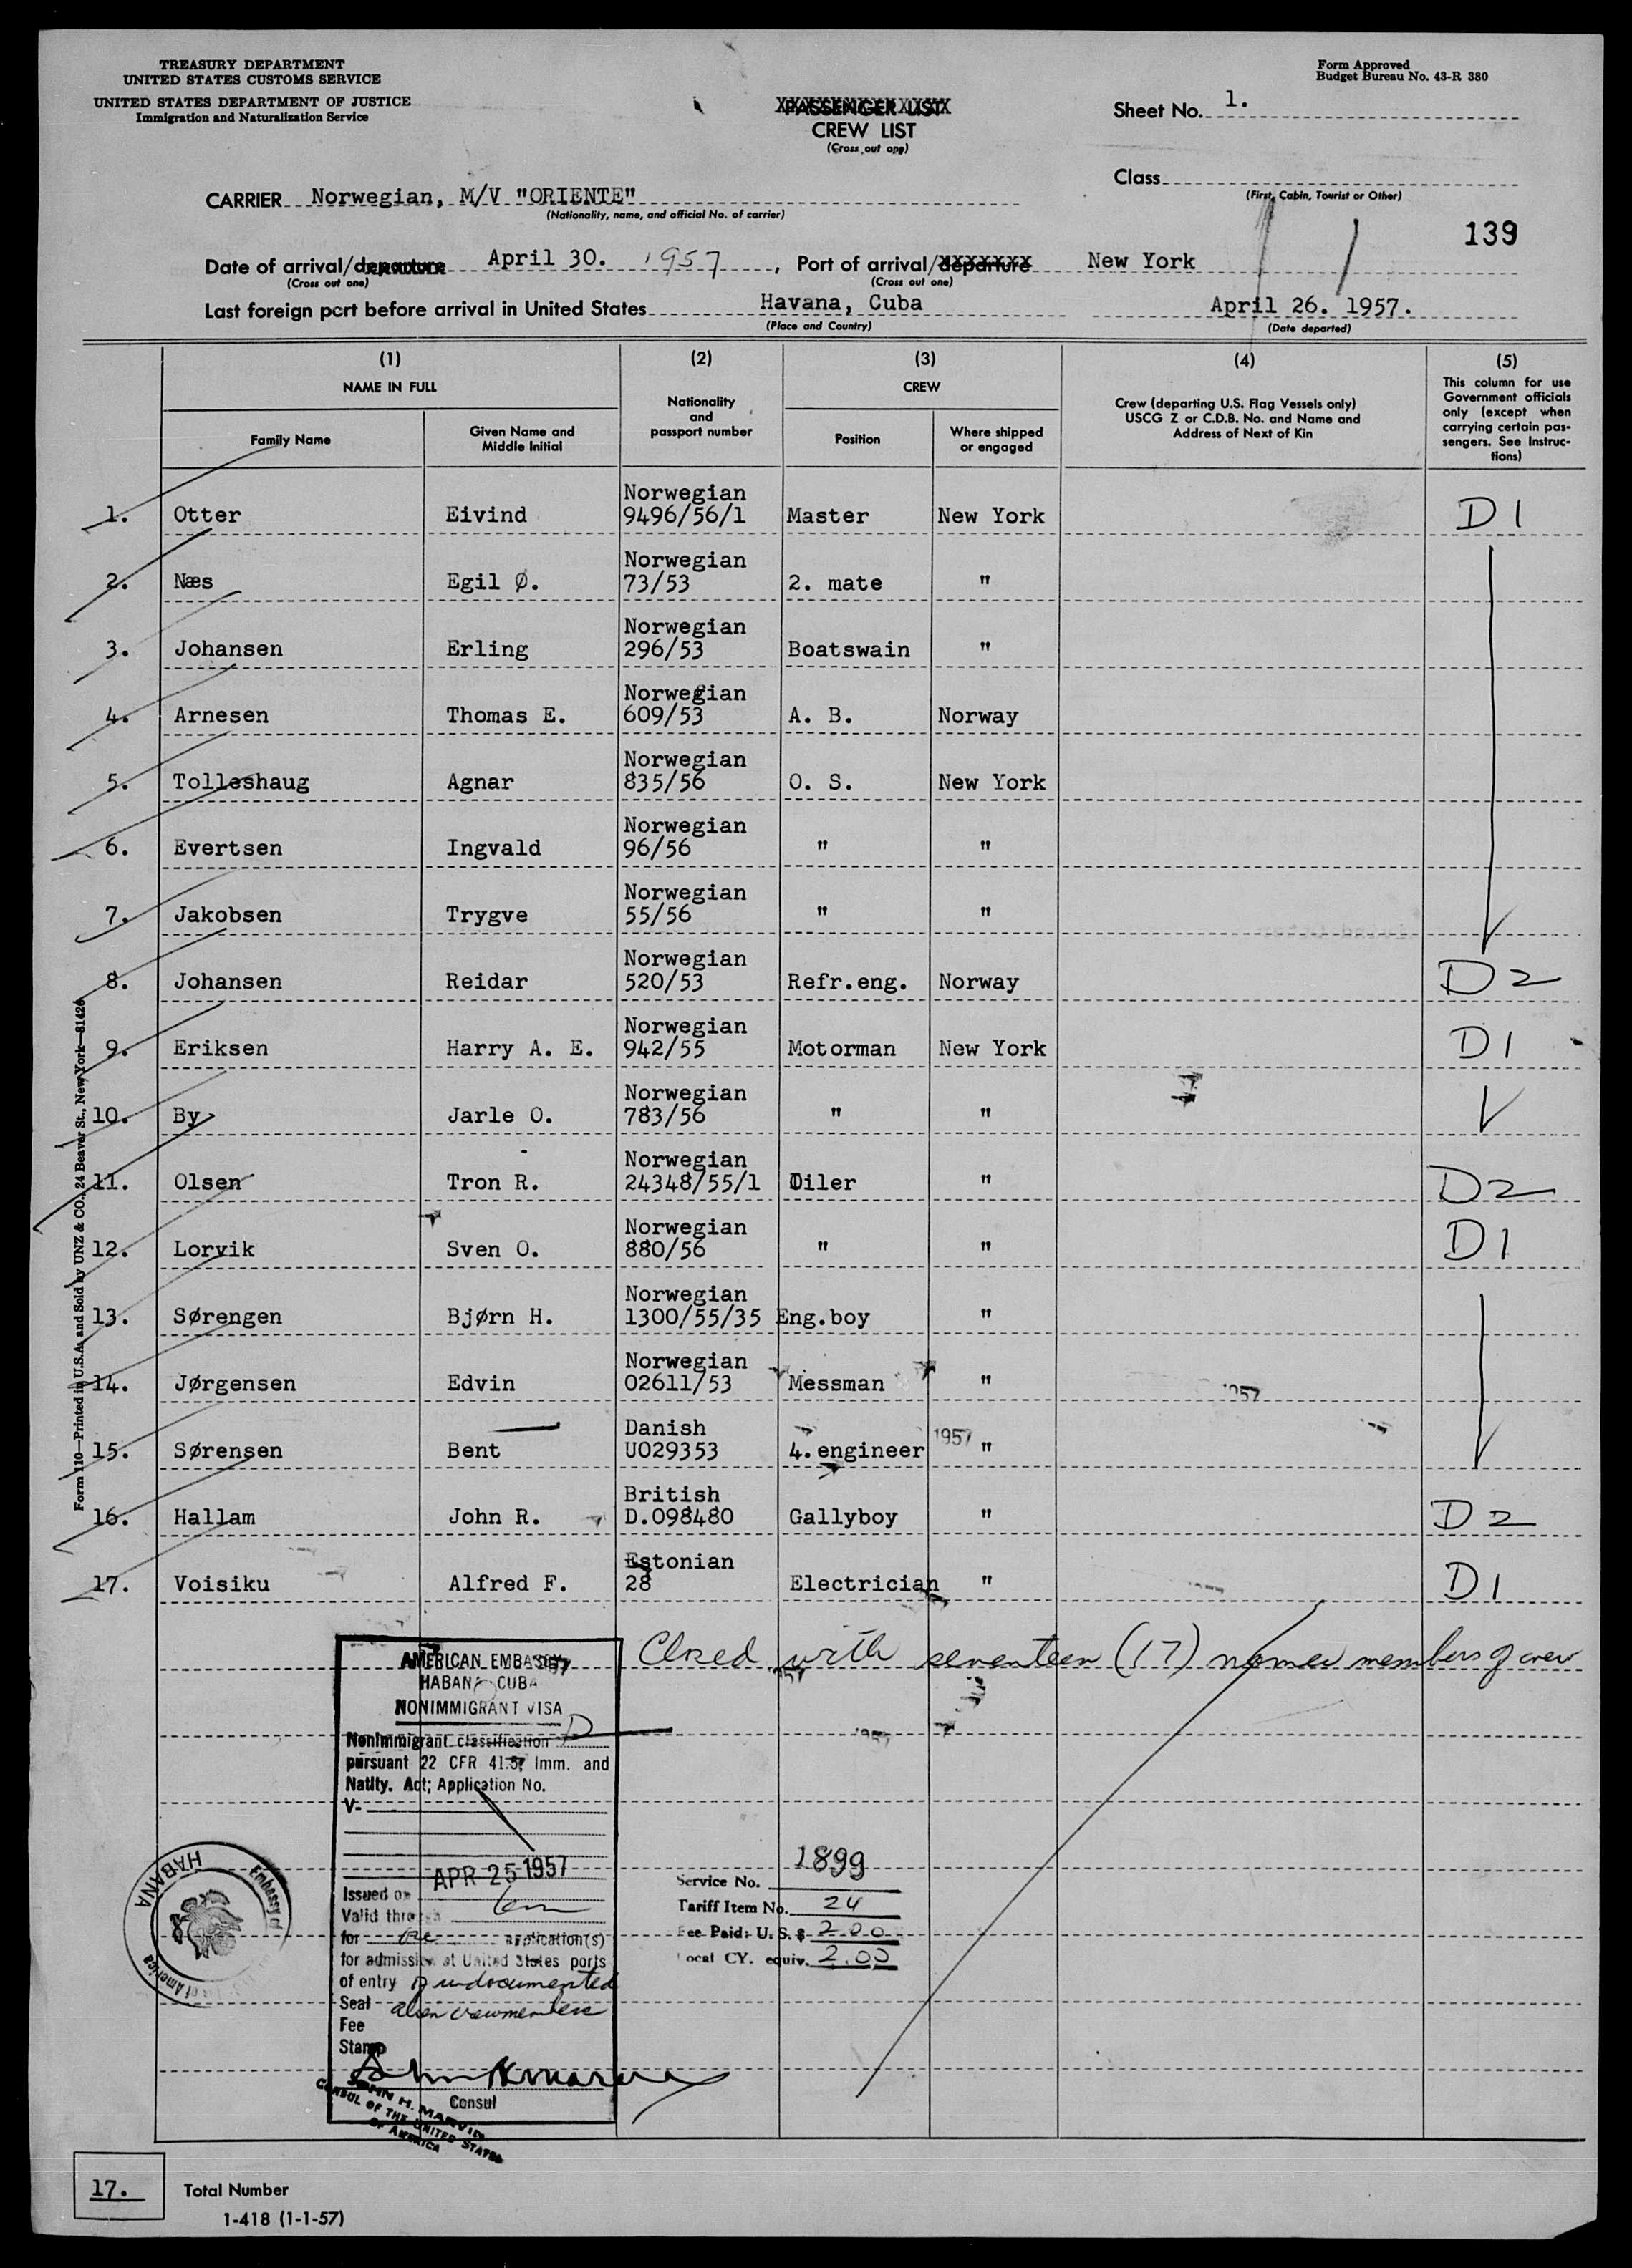 TREASURY DEPARTMENT
UNITED STATES CUSTOMS SERVICE
UNITED STATES DEPARTMENT OF JUSTICE
Immigration and Naturalization Service
PASSENGER LIST
CREW LIST
(Cross out one)
Form Approved
Budget Bureau No. 43-R 380
Sheet No. 1.
Class
(First, Cabin, Tourist or Other)
CARRIER Norwegian, M/V "ORIENTE"
(Nationality, name, and official No. of carrier)
139
Date of arrival/departure April 30. 1957, Port of arrival/departure New York
(Cross out one) (Cross out one)
Last foreign port before arrival in United States Havana, Cuba April 26. 1957.
(Place and Country) (Date departed)
(1) (2) (3) (4) (5)
NAME IN FULL
Family Name
Given Name and
Middle Initial
Nationality
and
passport number
CREW
Position
Where shipped
or engaged
Crew (departing U.S. Flag Vessels only)
USCG Z or C.D.B. No. and Name and
Address of Next of Kin
This column for use
Government officials
only (except when
carrying certain pas-
sengers. See Instruc-
tions)
Norwegian
1. Otter Eivind 9496/56/1 Master New York D1
Norwegian
2. Næs Egil Ø. 73/53 2. mate "
Norwegian
3. Johansen Erling 296/53 Boatswain "
Norwegian
4. Arnesen Thomas E. 609/53 A. B. Norway
Norwegian
5. Tolleshaug Agnar 835/56 O. S. New York
Norwegian
6. Evertsen Ingvald 96/56 " "
Norwegian
7. Jakobsen Trygve 55/56 " "
Norwegian
8. Johansen Reidar 520/53 Refr.eng. Norway D2
Norwegian
9. Eriksen Harry A. E. 942/55 Motorman New York D1
Norwegian
10. By Jarle O. 783/56 " "
Norwegian
11. Olsen Tron R. 24348/55/1 Oiler " D2
Norwegian
12. Lorvik Sven O. 880/56 " " D1
Norwegian
13. Sørengen Bjørn H. 1300/55/35 Eng.boy "
Norwegian
14. Jørgensen Edvin 02611/53 Messman "
1957
Danish
15. Sørensen Bent U029353 4. engineer 1957 "
British
16. Hallam John R. D.098480 Gallyboy " D2
Estonian
17. Voisiku Alfred F. 28 Electrician " D1
Closed with seventeen (17) names members of crew
AMERICAN EMBASSY
HABANA CUBA
NONIMMIGRANT VISA
Nonimmigrant classification D
pursuant 22 CFR 41.5; Imm. and
Natlty. Act; Application No.
V-
APR 25 1957
Issued on
Valid through
for one application(s)
for admission at United States ports
of entry of undocumented
Seal alien crewmembers
Fee
Stamp
Consul
JOHN H. MARVIN
CONSUL OF THE UNITED STATES
OF AMERICA
HABANA
Embassy of
of America
Service No. 1899
Tariff Item No. 24
Fee Paid: U. S. $ 2.00
Local CY. equiv. 2.00
Form 110—Printed in U.S.A. and Sold by UNZ & CO., 24 Beaver St., New York—81426
17. Total Number
1-418 (1-1-57)